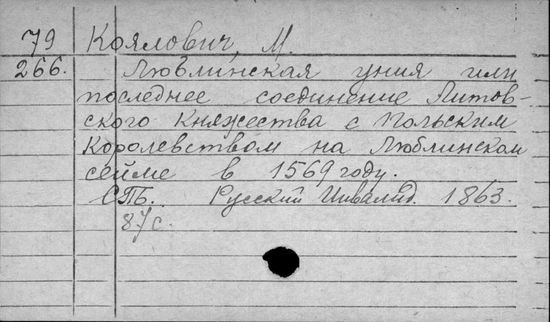 79 Коялович, М.
266. Люблинская уния или
последнее соединение Литов-
ского Княжества с Польским
Королевством на Люблинском
сейме в 1569 году.
СПБ. Русский Инвалид. 1863.
87 с.